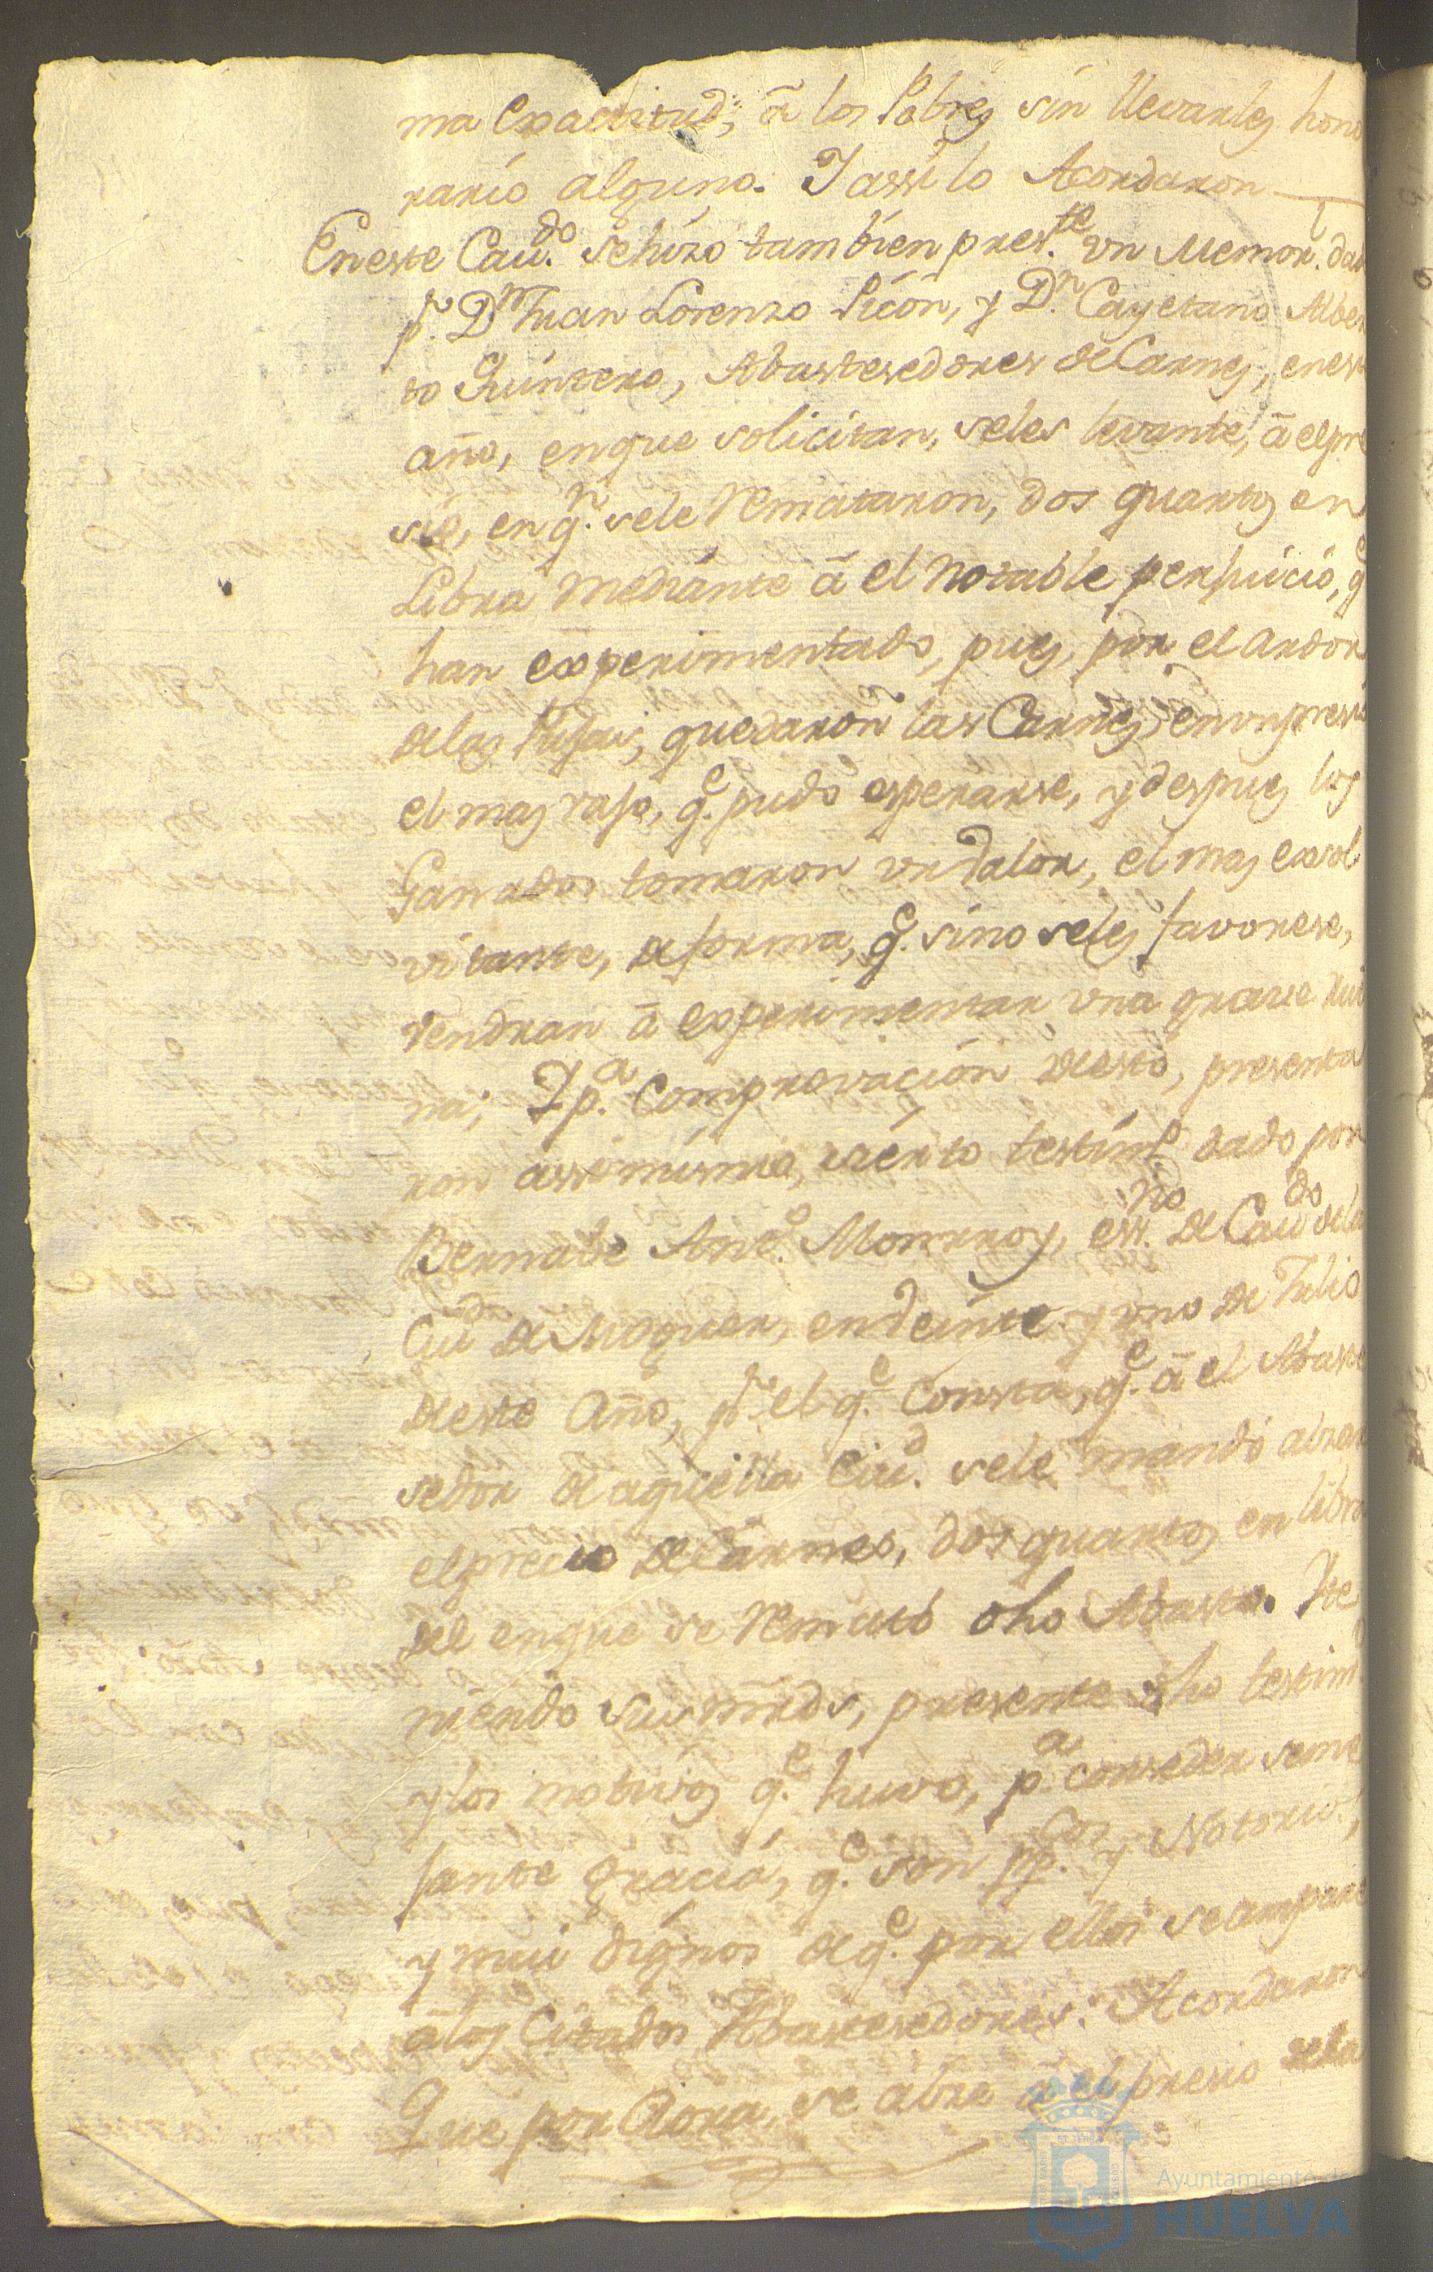 ma exactitud, â los Pobres sin llevarles hono
rario alguno. Y assi lo Acordaron
En este Cau.do se hizo tambien pres.te vn Memor. dado
p.r D.n Juan Lorenzo Picon, y D.n Cayetano Alber
to Quintero, Abastesedores de Carnes, en este
año, en que solicitan, se les levante, â el pre
sio, en q.e se le Remataron, dos quartos en
Libra mediante â el Notable perjuicio, q.e
han experimentado, pues, por el ardor
de las Pujas, quedaron las Carnes, en vn presio
el mas vajo, q.e pudo esperarse, y despues los
Ganados tomaron vn valor, el mas exsor
vitante, de forma, q.e sino se les favorese,
vendran â experimentar vna grave Rui
na; Y p.a Comprovacion de esto, presenta
ron assimismo, cierto testim.o dado por
Bernabe Ant.o Monrroy, ess.no de Cau.do de la
Ciu.d de Moguer, en veinte y uno de Julio
de este Año, p.r el q.e Consta, q.e â el Abaste
sedor de aquella Ciu.d se le mandó abrar
el precio de Carnes, dos quartos en libra
del en que se Remató dho Abasto. Y te
niendo sus mrds, presente dho testim.o
y los motivos q.e huvo, p.a conseder seme
jante gracia, q.e son pp.cos y Notorios,
y mui dignos de q.e por ellos se ampare
â los Citados Abastesedores: Acordaron
Que por Aora, se abra â el presio de la
Ayuntamiento de
HUELVA